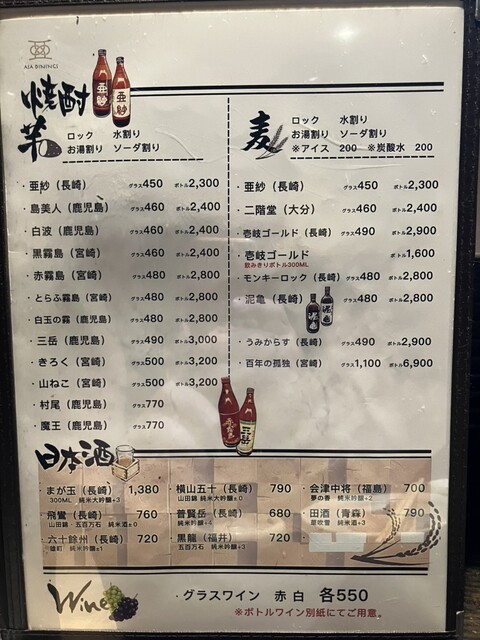 ASA DINING
焼酎
芋
ロック 水割り
お湯割り ソーダ割り
・亜紗（長崎） グラス450 ボトル2,300
・島美人（鹿児島） グラス460 ボトル2,400
・白波（鹿児島） グラス460 ボトル2,400
・黒霧島（宮崎） グラス460 ボトル2,400
・赤霧島（宮崎） グラス480 ボトル2,800
・とらふ霧島（宮崎） グラス480 ボトル2,800
・白玉の霧（鹿児島） グラス480 ボトル2,800
・三岳（鹿児島） グラス490 ボトル3,000
・きろく（宮崎） グラス500 ボトル3,200
・山ねこ（宮崎） グラス500 ボトル3,200
・村尾（鹿児島） グラス770
・魔王（鹿児島） グラス770
麦
ロック 水割り
お湯割り ソーダ割り
※アイス 200 ※炭酸水 200
・亜紗（長崎） グラス450 ボトル2,300
・二階堂（大分） グラス460 ボトル2,400
・壱岐ゴールド（長崎） グラス490 ボトル2,900
・壱岐ゴールド ボトル1,600
飲みきりボトル300ML
・モンキーロック（長崎） グラス480 ボトル2,800
・泥亀（長崎） グラス480 ボトル2,800
・うみからす（長崎） グラス490 ボトル2,900
・百年の孤独（宮崎） グラス1,100 ボトル6,900
日本酒
・まが玉（長崎） 1,380
300ML 純米大吟醸+3
・飛鸞（長崎） 760
山田錦・五百万石 純米酒±0
・六十餘州（長崎） 720
雄町 純米吟醸±1
・横山五十（長崎） 790
山田錦 純米大吟醸±0
・普賢岳（長崎） 680
純米吟醸+4
・黒龍（福井） 720
五百万石 純米吟醸+3
・会津中将（福島） 700
夢の香 純米吟醸+2
・田酒（青森） 790
華吹雪 純米酒+3
Wine
・グラスワイン 赤 白 各550
※ボトルワイン別紙にてご用意。